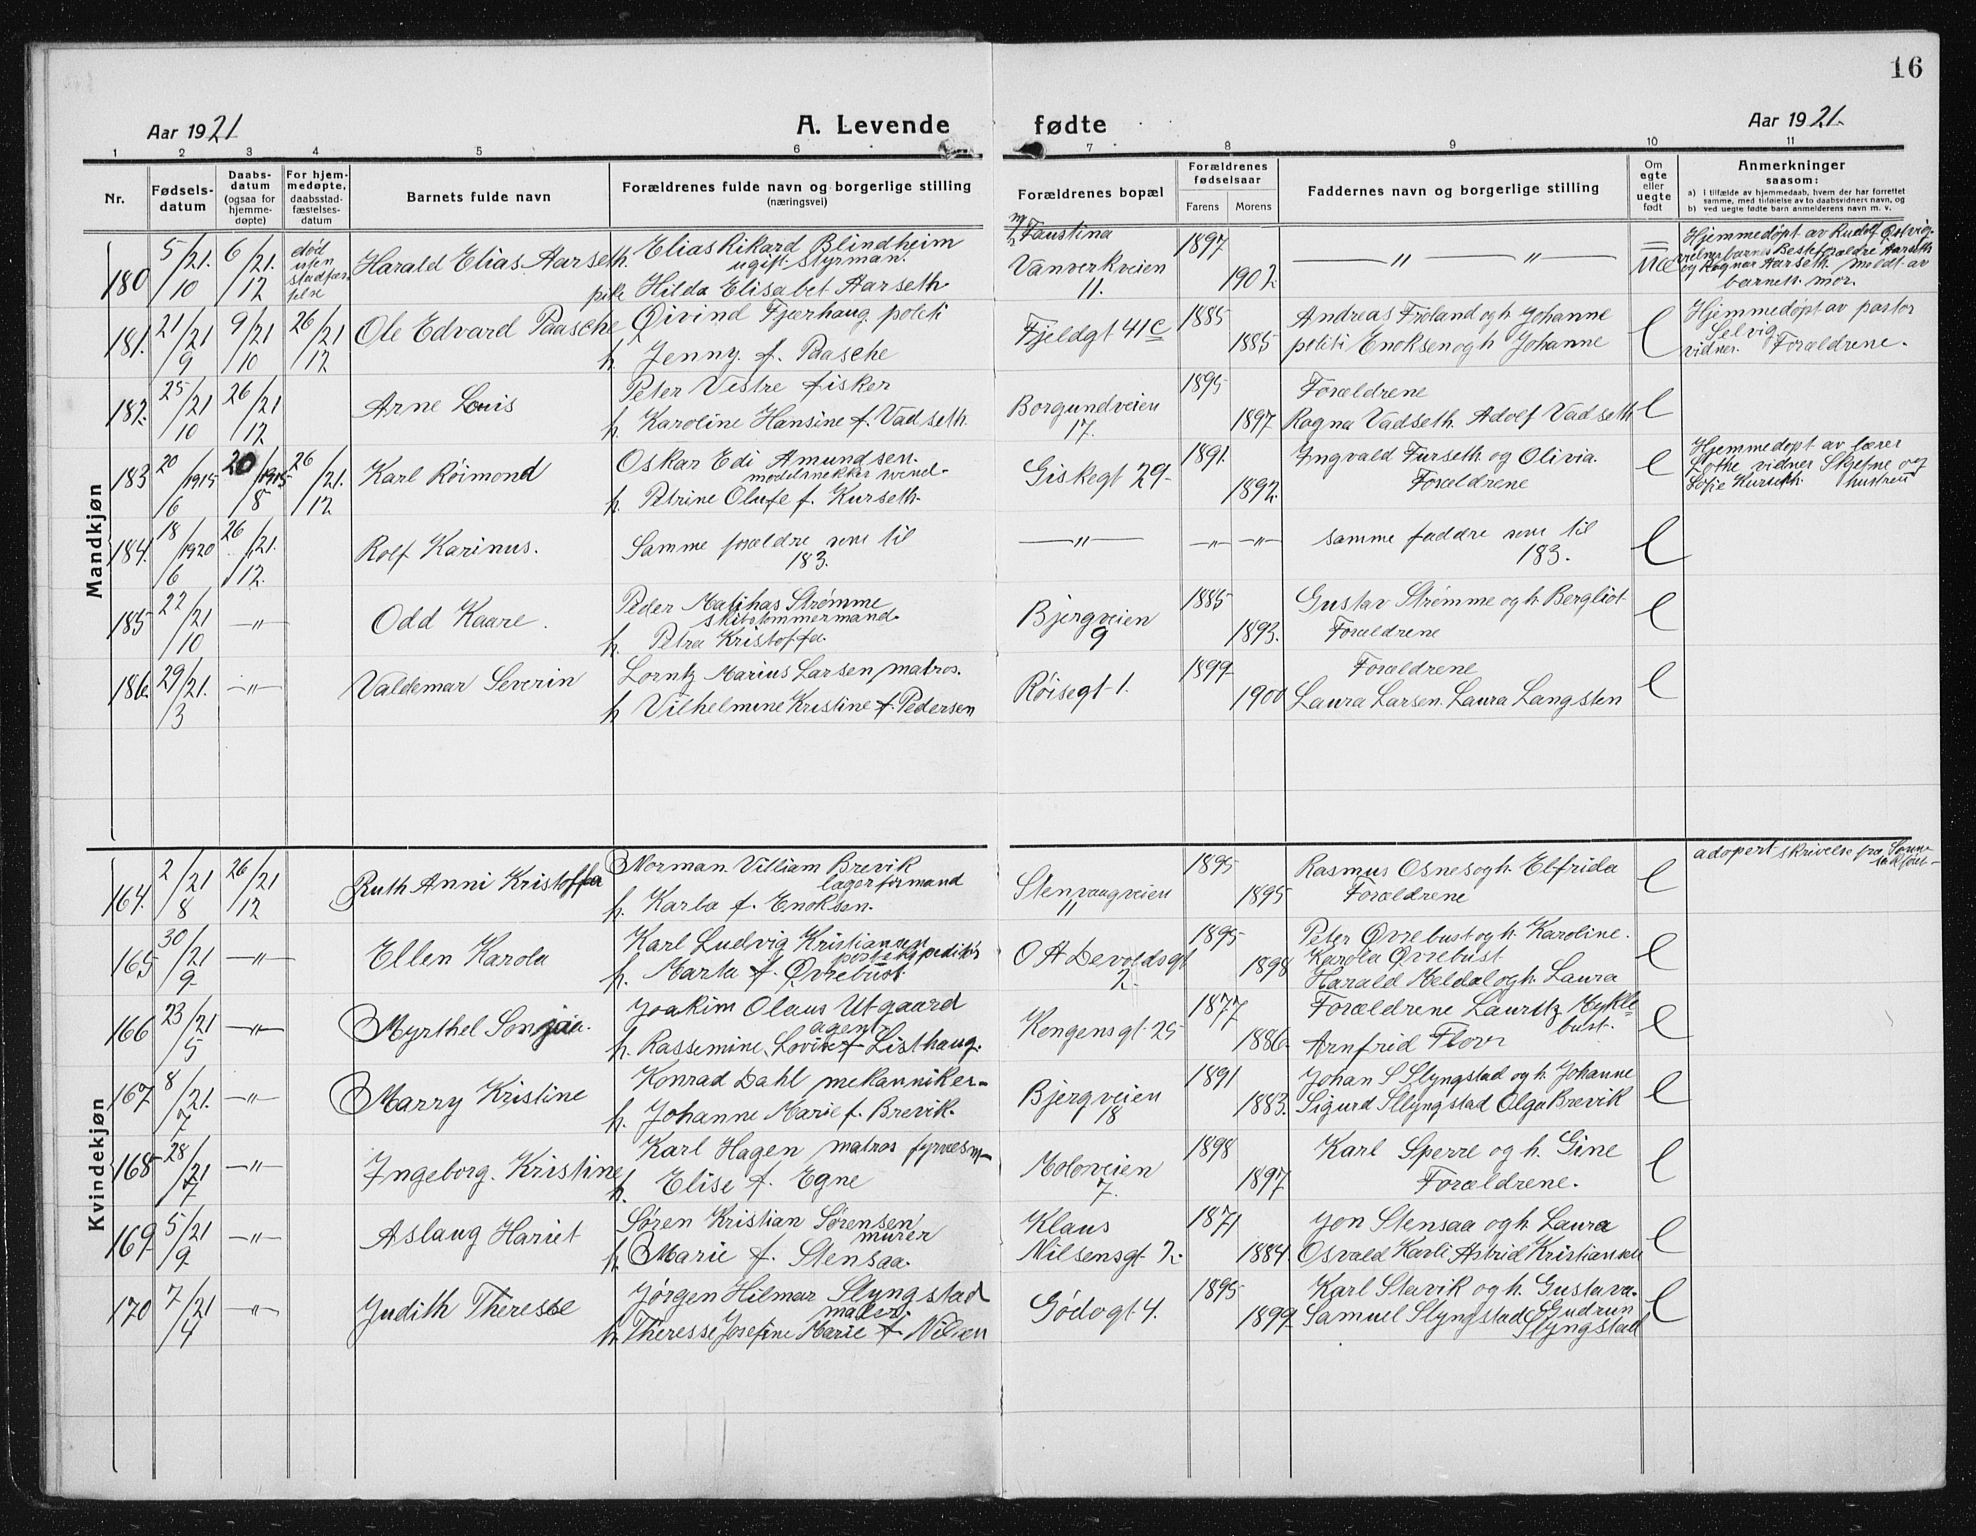 16
Aar 1921
A. Levende fødte
Aar 1921.
1 2 3 4 5 6 7 8 9 10 11
Nr.
Fødsels-
datum
Daabs-
datum
(ogsaa for
hjemme-
døpte)
For hjem-
medøpte,
daabsstad-
fæstelses-
datum
Barnets fulde navn
Forældrenes fulde navn og borgerlige stilling
(næringsvei)
Forældrenes bopæl
Forældrenes
fødselsaar
Farens Morens
Faddernes navn og borgerlige stilling
Om
egte
eller
uegte
født
Anmerkninger
saasom:
a) I tilfælde av hjemmedaab, hvem der har forrettet
samme, med tilføielse av to daabsvidners navn, og
b) ved uegte fødte barn anmelderens navn m. v.
Mandkjøn
180 5/10 21. 6/12 21. død uten stadfæstelse
Harald Elias Aarseth.
Elias Rikard Blindheim
ugift styrman.
pike Hilda Elisabet Aarseth
Faustina
Vanverkveien
11.
1897 1902.
— " — — " —
Hjemmedøpt av Rudolf
barnets Besteforældre Aarseth
og Ragnar Aarseth. meldt av
barnets mor.
181. 21/9 21 9/10 21 26/12 21
Ole Edvard Paasche
Øivind Fjærhaug politi
h. Jenny f. Paasche
Fjeldgt 41c
1885 1885
Andreas Frøland og h Johanne
politi Enoksen og h Johanne
l
Hjemmedøpt av pastor
Selvig
vidner. Forældrene.
182. 25/10 21 26/12 21
Arne Louis
Peter Vestre fisker
h. Karoline Hansine f. Vadseth.
Borgundveien
17.
1895 1897
Forældrene
Ragna Vadseth Adolf Vadseth
l
183 20/6 1915 20/8 1915 26/12 21.
Karl Röimond
Oskar Edi Amundsen.
h. Petrine Olufe f. Kurseth.
Giskegt 29
1891. 1892.
Ingvald Furseth og Olivia.
Forældrene
l
Hjemmedøpt av lærer
vidner
Sofie Kurseth. hustru
184. 18/6 1920 26/12 21.
Rolf Karinus.
Samme forældre som til
183.
— " — — " — — " —
samme faddre som til
183.
l
185 22/10 21 — " —
Odd Kaare.
Peder Mathas Strømme
skibstømmermand.
h. Petra Kristoffa
Bjergveien
9
1885 1893.
Gustav Strömme og h. Bergliot
Forældrene
l
186. 29/3 21. — " —
Valdemar Severin
Lorntz Marius Larsen matros.
h Vilhelmine Kristine f. Pedersen
Röisegt 1.
1899 1900
Forældrene
Laura Larsen. Laura Langsten
l
Kvindekjøn
164. 2/8 21 26/12 21
Ruth Anni Kristoffa
Norman Villiam Brevik
lagerformand
h. Karla f. Enoksen.
Stenvaagveien
11
1895 1895
Rasmus Osnes og h. Elfrida
Forældrene
l
adopert skrivelse fra
165 30/9 21 — " —
Ellen Karola
Karl Ludvig Kristiansen
postekspeditör
h. Marta f. Øvrebust.
O A Devoldsgt
2.
1895 1898
Peter Øvrebust og h. Karoline.
Karola Øvrebust
Harald Meldal og h. Laura
l
166 23/5 21 — " —
Myrthel Sonja.
Joakim Olaus Utgaard
agent
h. Rassemine Lovise f Listhaug.
Kongensgt 25
1877 1886
Forældrene Lauritz Mykle-
bust.
Arnfrid Flovr
l
167 8/7 21. — " —
Marry Kristine
Konrad Dahl mekanniker
h. Johanne Marie f. Brevik.
Bjergveien
18
1891 1883.
Johan S Slyngstad og h. Johanne
Sigurd Slyngstad Olga Brevik
l
168 28/7 21 — " —
Ingeborg. Kristine
Karl Hagen matros
h. Elise f. Egne
Moloveien
7.
1898 1897
Karl Sperre og h. Gine
Forældrene.
l
169 5/9 21 — " —
Aslaug Hariet
Sören Kristian Sørensen
murer
h. Marie f. Stensaa.
Klaus
Nilsensgt 2
1871 1884.
Jon Stensaa og h. Laura
Osvald Karli Astrid Kristiansen
l
170 7/4 21 — " —
Judith Therese
Jørgen Hilmar Slyngstad
maler
h. Therese Josefine Marie f. Nilsen
Gödøgt 4.
1895 1899
Karl Slavik og h. Gustava.
Samuel Slyngstad Gudrun
Slyngstad
l